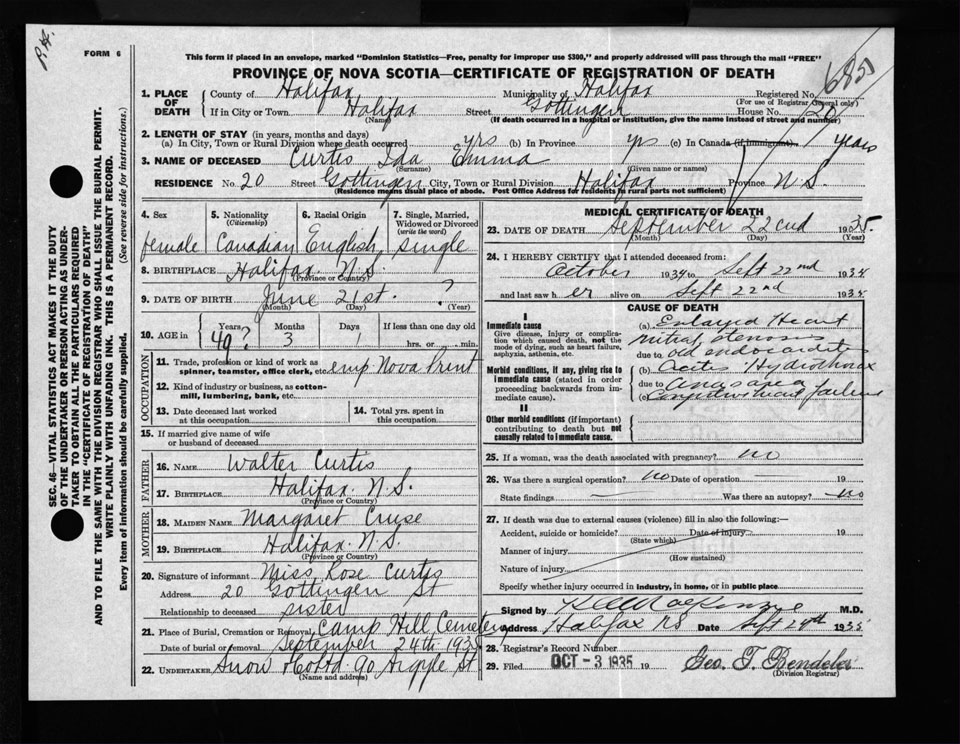 P.H.
FORM 6
This form if placed in an envelope, marked "Dominion Statistics—Free, penalty for improper use $300," and properly addressed will pass through the mail "FREE"
PROVINCE OF NOVA SCOTIA—CERTIFICATE OF REGISTRATION OF DEATH
685
1. PLACE OF DEATH
County of Halifax Municipality of Halifax Registered No.
(For use of Registrar General only)
If in City or Town Halifax Street Gottingen House No. 20
(Name) (If death occurred in a hospital or institution, give the name instead of street and number)
2. LENGTH OF STAY (in years, months and days)
(a) In City, Town or Rural Division where death occurred yrs (b) In Province yrs (c) In Canada (if immigrant) years
3. NAME OF DECEASED Curtis Ida Emma
(Surname) (Given name or names)
RESIDENCE No. 20 Street Gottingen City, Town or Rural Division Halifax Province N.S.
(Residence means usual place of abode. Post Office Address for residents in rural parts not sufficient)
4. Sex female
5. Nationality (Citizenship) Canadian
6. Racial Origin English
7. Single, Married, Widowed or Divorced (write the word) single
8. BIRTHPLACE Halifax N.S.
(Province or Country)
9. DATE OF BIRTH June 21st. ?
(Month) (Day) (Year)
10. AGE in Years Months Days If less than one day old
49? 3 1 hrs. or min.
OCCUPATION
11. Trade, profession or kind of work as spinner, teamster, office clerk, etc. emp. Nova Print
12. Kind of industry or business, as cotton-mill, lumbering, bank, etc.
13. Date deceased last worked at this occupation
14. Total yrs. spent in this occupation
15. If married give name of wife or husband of deceased
FATHER
16. Name Walter Curtis
17. Birthplace Halifax. N.S.
(Province or Country)
MOTHER
18. Maiden Name Margaret Cruse
19. Birthplace Halifax. N.S.
(Province or Country)
20. Signature of informant Miss Rose Curtis
Address 20 Gottingen St
Relationship to deceased sister
21. Place of Burial, Cremation or Removal Camp Hill Cemetery
Date of burial or removal September 24th 1935
22. UNDERTAKER Snow Co Ltd. 90 Argyle St.
(Name and address)
MEDICAL CERTIFICATE OF DEATH
23. DATE OF DEATH September 22nd 1935.
(Month) (Day) (Year)
24. I HEREBY CERTIFY that I attended deceased from:
October 1934 to Sept 22nd 1934
and last saw her alive on Sept 22nd 1935
CAUSE OF DEATH
I
Immediate cause
Give disease, injury or complication which caused death, not the mode of dying, such as heart failure, asphyxia, asthenia, etc.
(a) Enlarged Heart
mitral stenosis
due to old endocarditis
Morbid conditions, if any, giving rise to immediate cause (stated in order proceeding backwards from immediate cause).
(b) Hydrothorax
due to anasarca
(c) failure
II
Other morbid conditions (if important) contributing to death but not causally related to immediate cause.
25. If a woman, was the death associated with pregnancy? no
26. Was there a surgical operation? no Date of operation — 19
State findings — Was there an autopsy? no
27. If death was due to external causes (violence) fill in also the following:—
Accident, suicide or homicide? Date of injury 19
(State which)
Manner of injury
(How sustained)
Nature of injury
Specify whether injury occurred in industry, in home, or in public place
Signed by MacKenzie M.D.
Address Halifax NS Date Sept 24th 1935
28. Registrar's Record Number
29. Filed OCT - 3 1935 19 Geo. T.
(Division Registrar)
SEC. 46—VITAL STATISTICS ACT MAKES IT THE DUTY OF THE UNDERTAKER OR PERSON ACTING AS UNDERTAKER TO OBTAIN ALL THE PARTICULARS REQUIRED IN THE "CERTIFICATE OF REGISTRATION OF DEATH"
AND TO FILE THE SAME WITH THE DIVISION REGISTRAR WHO SHALL ISSUE THE BURIAL PERMIT.
WRITE PLAINLY WITH UNFADING INK. THIS IS A PERMANENT RECORD.
Every item of information should be carefully supplied. (See reverse side for instructions.)